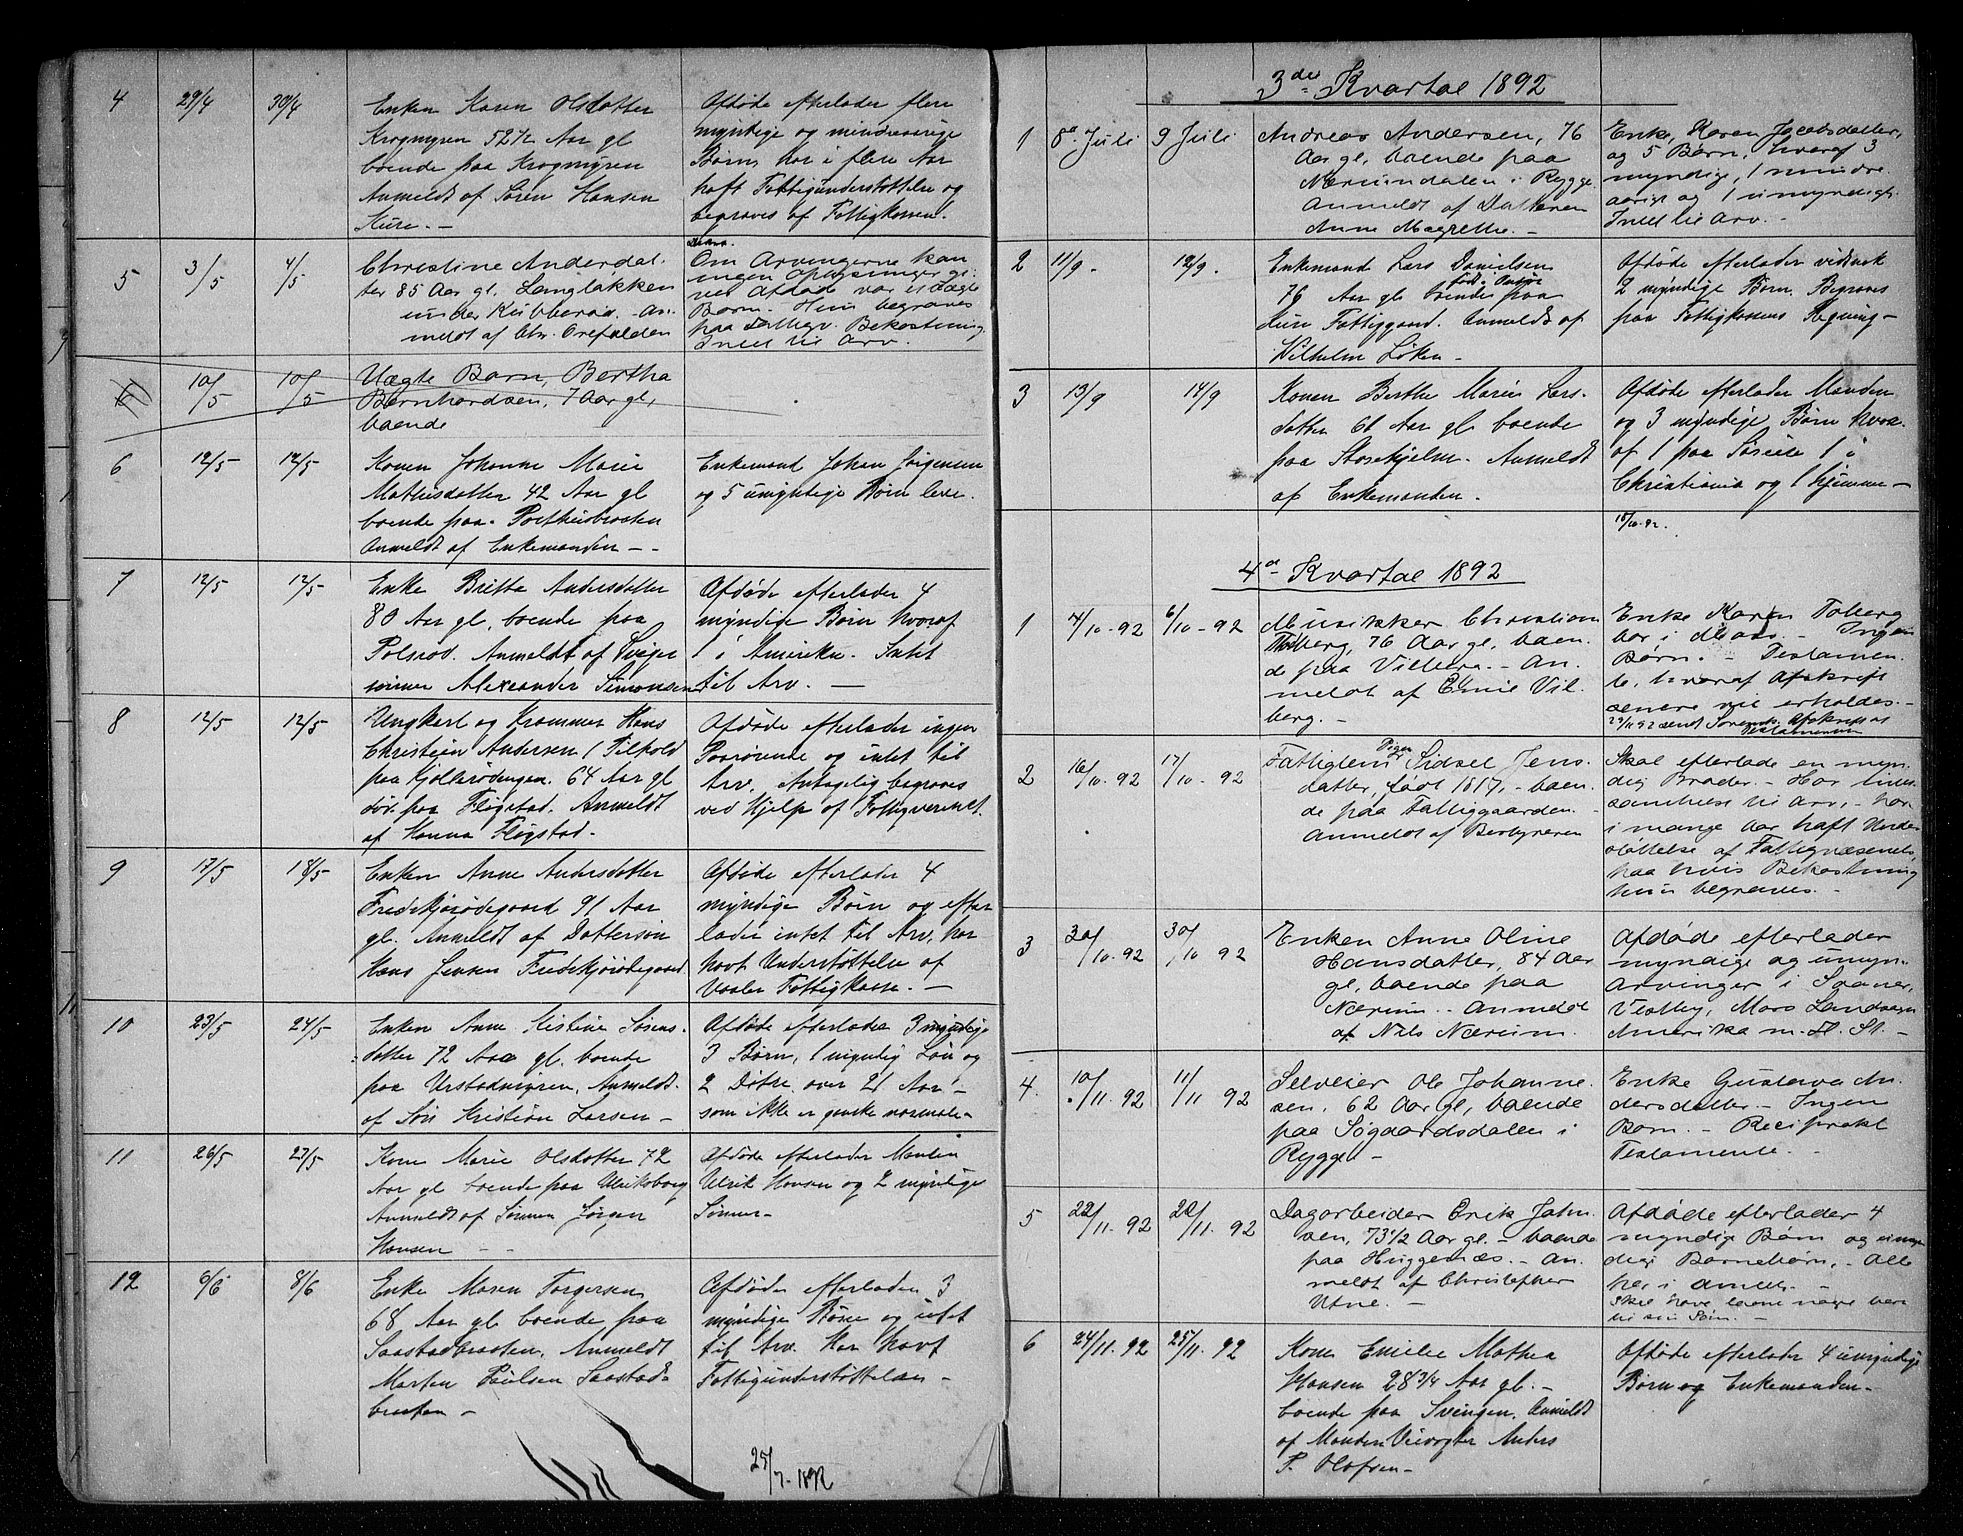 4 29/4 30/4
Enken Karen Olsdatter
Krogmyren 52 1/2 Aar gl
boende paa Krogmyren
Anmeldt af Søren Hansen
Kure. -
Afdøde efterlader flere
myndige og mindreaarige
Børn, har i flere Aar
haft Fattigunderstøttelse og
begraves af Fattigkassen.
5 3/5 4/5
Christine Anderdat-
ter 85 Aar gl. Langløkken
under Kubberød. An-
meldt af Chr. Orefalden
Om Arvingerne kan
ingen Oplysninger gi-
ves Afdøde var uægte
Barn. Hun begraves
paa Bekostning
Intet til Arv.
10/5 10/5
Uægte Barn, Bertha
Bernhardsen, 7 Aar gl,
boende
6 12/5 12/5
Konen Johanne Marie
Mathisdatter 42 Aar gl
boende paa Porthusbraaten
Anmeldt af Enkemanden - -
Enkemand Johan Jørgensen
og 5 umyndige Børn lever.
7 12/5 12/5
Enke Britta Andersdatter
80 Aar gl, boende paa
Polsrød. Anmeldt af Sviger
sønnen Alexander Simonsen
Afdøde efterlader 4
myndige Børn hvoraf
1 i Amerika. Intet
til Arv. -
8 12/5 12/5
Ungkarl og Krammer Hans
Christian Andersen (Tilhold
paa Kjøllerødengen. 64 Aar gl
død paa Fløgstad. Anmeldt
af Hanna Fløgstad.
Afdøde efterlader ingen
Paarørende og intet til
Arv. Antagelig begraves
ved Hjelp af Fattigvesenet.
9 17/5 18/5
Enken Anne Andersdatter
Fredskjørødegaard 91 Aar
gl. Anmeldt af Dattersøn
Hans Jensen Fredskjørødegaard
Afdøde efterlader 4
myndige Børn og efter
lader intet til Arv, har
havt Understøttelse af
Vaaler Fattigkasse. -
10 23/5 24/5
Enken Anne Kristine Sørens-
datter 72 Aar gl. boende
paa Urstadmyren. Anmeldt
af Søn Kristian Larsen -
Afdøde efterlader 3 myndige
3 Børn, 1 myndig Søn og
2 Døtre over 21 Aar
som ikke er ganske normale -
11 26/5 27/5
Kone Marie Olsdatter 72
Aar gl boende paa Ulriksborg
Anmeldt af Sønnen Jørgen
Hansen - -
Afdøde efterlader Manden
Ulrik Hansen og 2 myndige
Sønner -
12 6/6 8/6
Enke Maren Torgersen
68 Aar gl boende paa
Saastadbraaten, Anmeldt
Marten Paulsen Saastad-
braaten -
Afdøde efterlader 3
myndige Børn og intet
til Arv. Har havt
Fattigunderstøttelse -
25/7 - 1892
3die Kvartal 1892
1 8de Juli 9 Juli
Andreas Andersen, 76
Aar gl, boende paa
Nærumdalen i Rygge.
Anmeldt af Datteren
Anne Magrethe. -
Enke, Karen Jacobsdatter,
og 5 Børn, hvoraf 3
myndige, 1 mindre-
aarige og 1 umyndigt.
Intet til Arv. -
2 11/9. 12/9.
Enkemand Lars Danielsen
76 Aar gl boende paa
Kure Fattiggaard. Anmeldt af
Wilhelm Løken -
Afdøde efterlader vidstnok
2 myndige Børn. Begraves
paa Fattigkassens Regning -
3 13/9 14/9
Konen Berthe Marie Lars-
datter 61 Aar gl. boende
paa Storehjelm. Anmeldt
af Enkemanden.
Afdøde efterlader Manden
og 3 myndige Børn hvor-
af 1 paa Søreise 1 i
Christiania og 1 hjemme -
18/10-92.
4de Kvartal 1892
1 4/10-92 6/10-92
Musikker Christian
Thoberg, 76 Aar gl, boen-
de paa Vilberg. - An-
meldt af Emil Vil-
berg. -
Enke Karen Toberg
bor i Moss. - Ingen
Børn. - Testamen-
te, hvoraf Afskrift
senere vil erholdes. -
29/11 92 sendt Sorensk. Afskrift af
Testamentet
2 16/10.92 17/10-92
Fattiglem Pigen Sidsel Jens-
datter, født 1817, - boen-
de paa Fattiggaarden.
Anmeldt af Bestyreren
Skal efterlade en myn-
dig Broder. - Har intet
til Arv, - har
i mange Aar haft Under-
støttelse af Fattigvæsenet,
paa hvis Bekostning
hun begraves. -
3 30/10.92 30/10 92
Enken Anne Oline
Hansdatter, 84 Aar
gl, boende paa
Nærum. - Anmeldt
af Nils Nærum.
Afdøde efterlader
myndige og umyn.
Arvinger i Soaner,
Vestby, Moss Landsogn
Amerika m. fl. St. -
4. 10/11.92 11/11 92
Selveier Ole Johanne-
sen, 62 Aar gl, boende
paa Søgaardsdalen i
Rygge -
Enke Gustava An-
dersdatter. - Ingen
Børn. - Reciprokt
Testamente. -
5 22/11.92 22/11.92
Dagarbeider Erik Johan-
sen, 73 1/2 Aar gl. - boende
paa Huggenæs. - An-
meldt af Christopher
Utne. -
Afdøde efterlader 4
myndige Børn og umyn-
dige Børnebørn, - Alle
her i Amtet. -
Skal have laant noget
til sin Søn. -
6 24/11.92 25/11.92
Kone Emilie Mathea
Hansen 28 3/4 Aar gl. -
boende paa Svingen. Anmeldt
af Manden Veivogter Anders
P. Olafsen -
Afdøde efterlader 4 umyndige
Børn og Enkemanden -